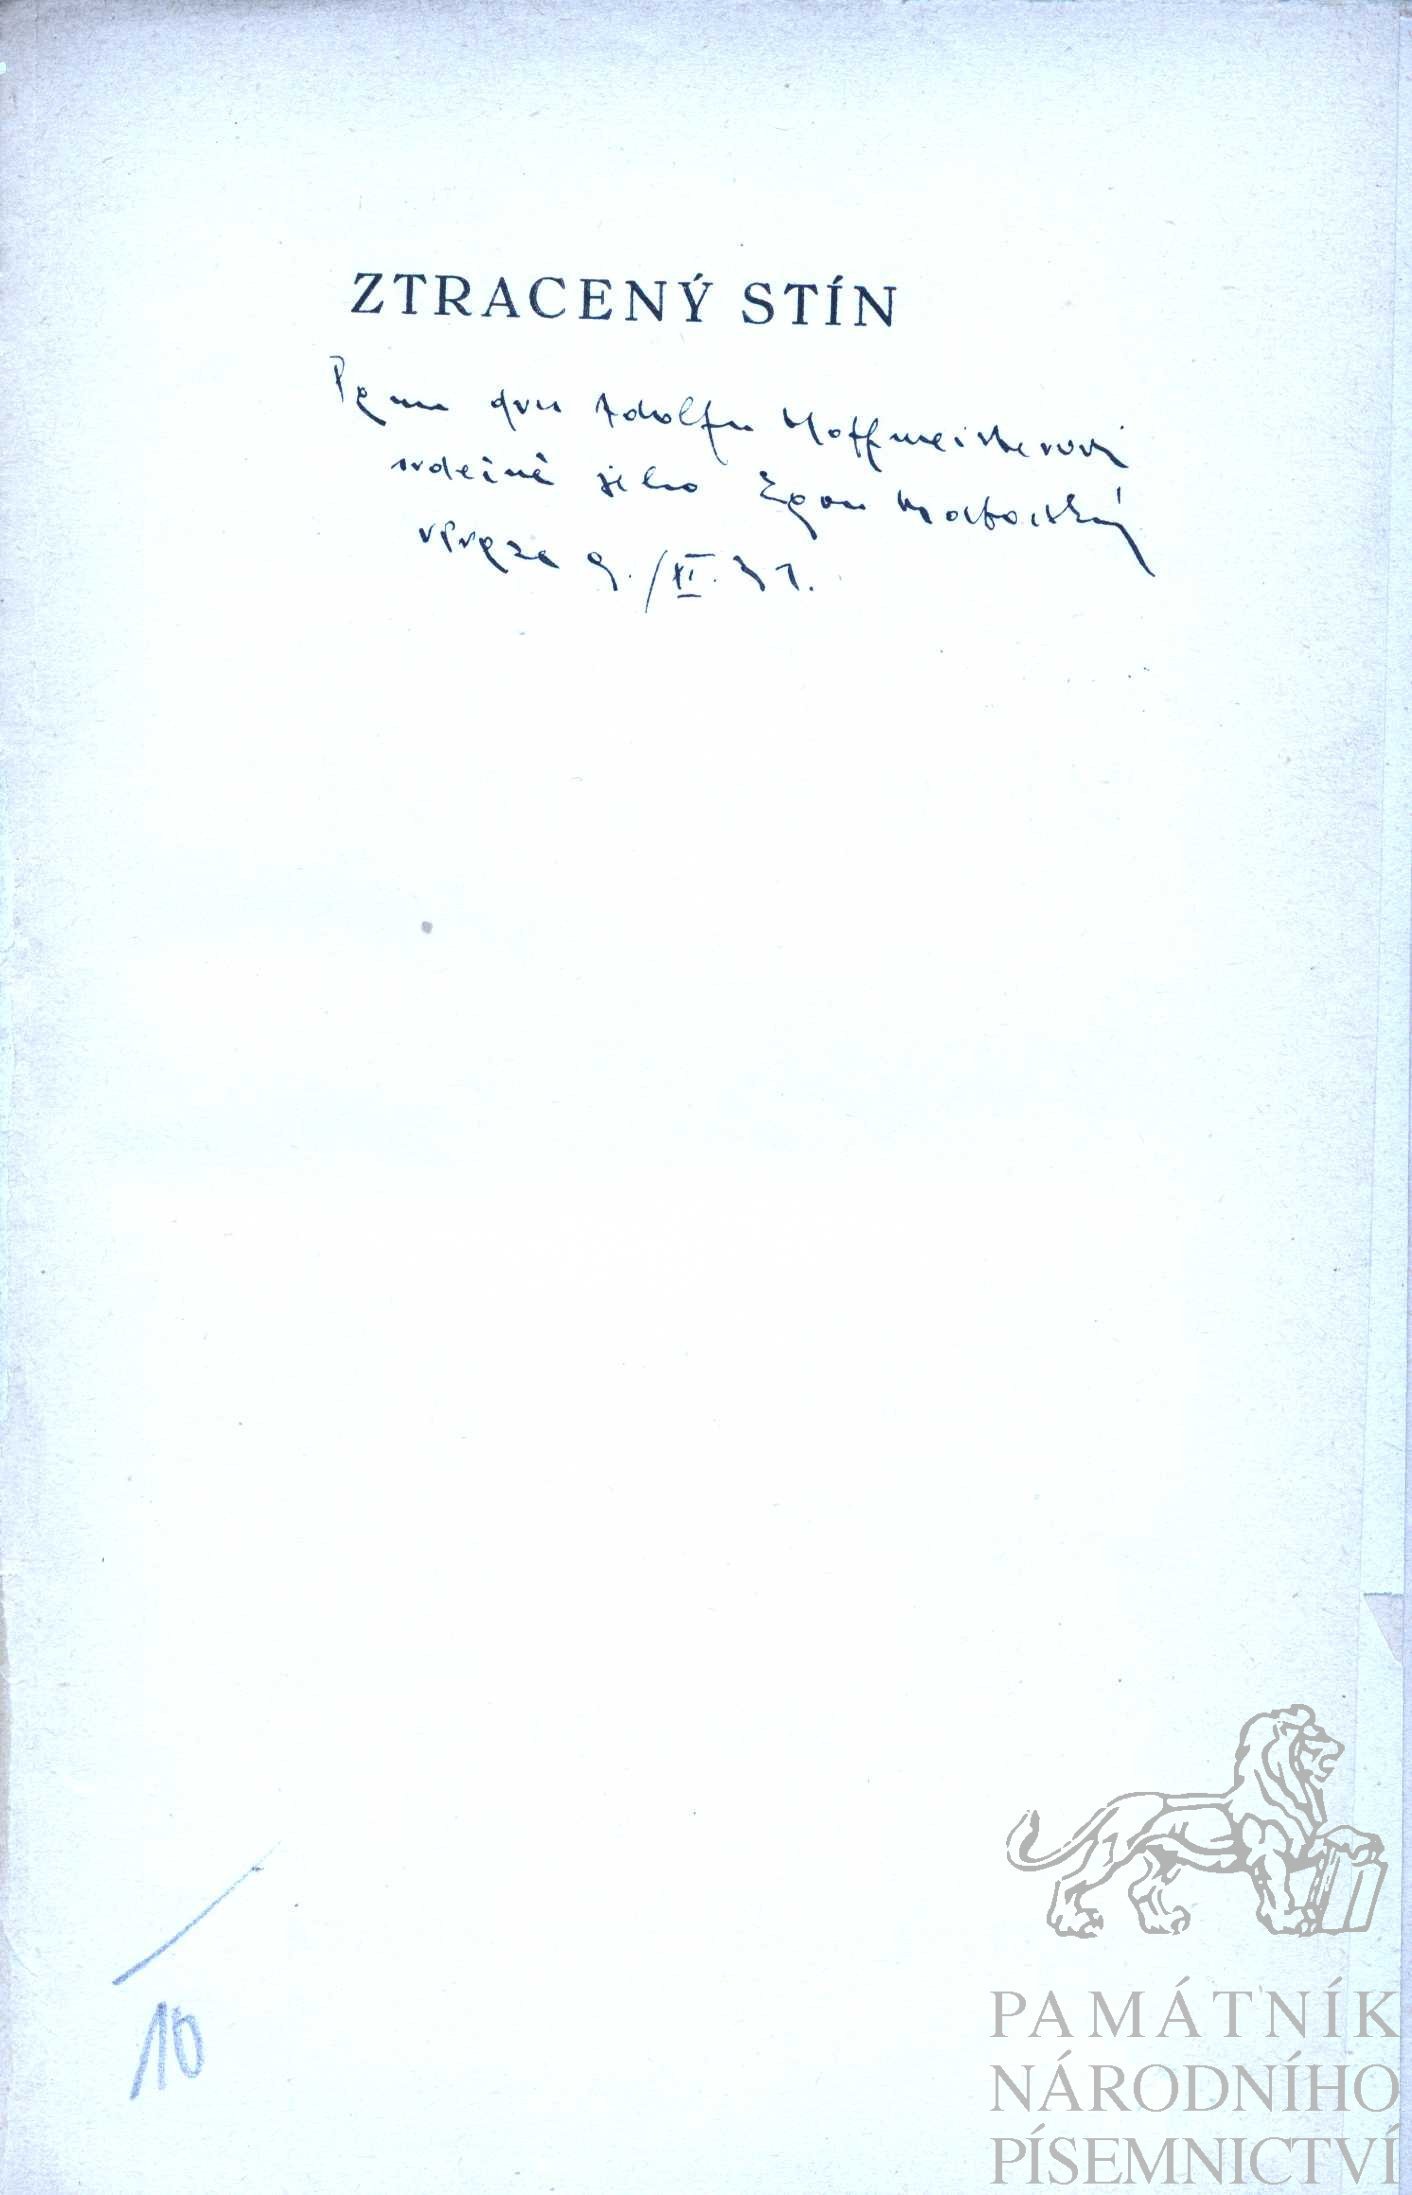 ZTRACENÝ STÍN
Panu dru Adolfu Hoffmeisterovi
srdečně jeho Egon Hostovský
v Praze 9./XI. 31.
10
PAMÁTNÍK
NÁRODNÍHO
PÍSEMNICTVÍ